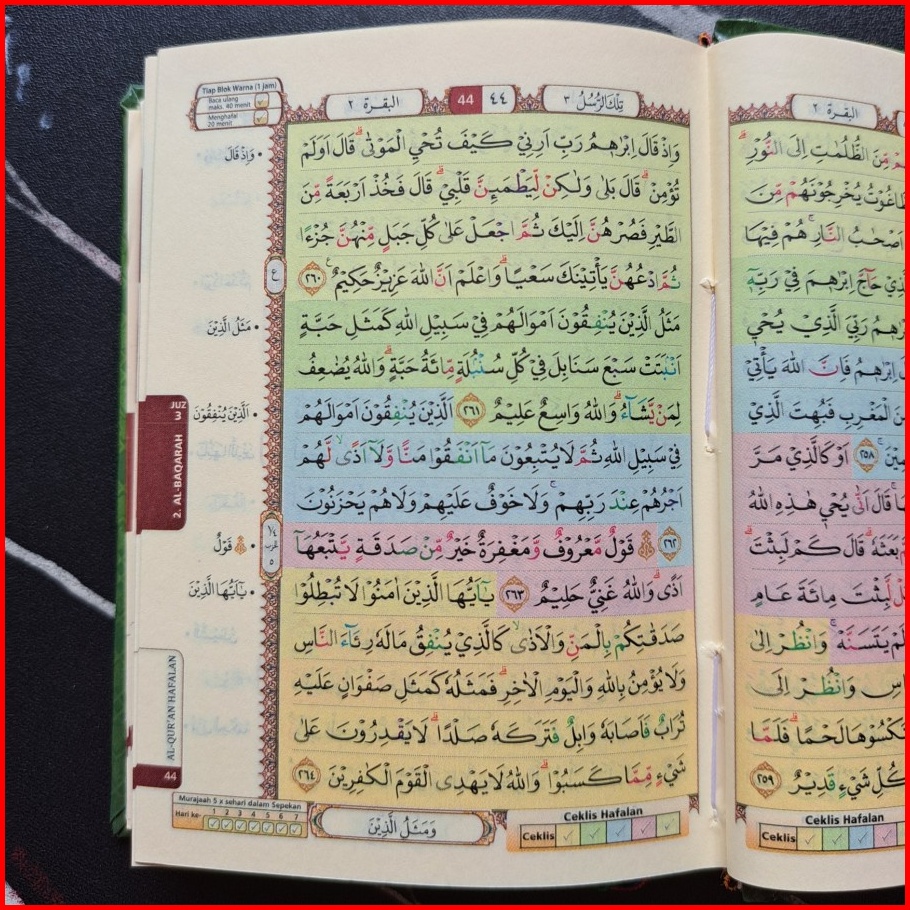 Tiap Blok Warna (1 jam)
Baca ulang
maks. 40 menit
Menghafal
20 menit
البقرة ٢
44 ٤٤
تِلْكَ الرُّسُلُ ٣
وَاِذْ قَالَ اِبْرٰهٖمُ رَبِّ اَرِنِيْ كَيْفَ تُحْيِ الْمَوْتٰىۗ قَالَ اَوَلَمْ
تُؤْمِنْۗ قَالَ بَلٰى وَلٰكِنْ لِّيَطْمَىِٕنَّ قَلْبِيْۗ قَالَ فَخُذْ اَرْبَعَةً مِّنَ
الطَّيْرِ فَصُرْهُنَّ اِلَيْكَ ثُمَّ اجْعَلْ عَلٰى كُلِّ جَبَلٍ مِّنْهُنَّ جُزْءًا
ثُمَّ ادْعُهُنَّ يَأْتِيْنَكَ سَعْيًاۗ وَاعْلَمْ اَنَّ اللّٰهَ عَزِيْزٌ حَكِيْمٌ ۚ ٢٦٠
مَثَلُ الَّذِيْنَ يُنْفِقُوْنَ اَمْوَالَهُمْ فِيْ سَبِيْلِ اللّٰهِ كَمَثَلِ حَبَّةٍ
اَنْۢبَتَتْ سَبْعَ سَنَابِلَ فِيْ كُلِّ سُنْۢبُلَةٍ مِّائَةُ حَبَّةٍۗ وَاللّٰهُ يُضٰعِفُ
لِمَنْ يَّشَاۤءُۗ وَاللّٰهُ وَاسِعٌ عَلِيْمٌ ٢٦١ اَلَّذِيْنَ يُنْفِقُوْنَ اَمْوَالَهُمْ
فِيْ سَبِيْلِ اللّٰهِ ثُمَّ لَا يُتْبِعُوْنَ مَآ اَنْفَقُوْا مَنًّا وَّلَآ اَذًىۙ لَّهُمْ
اَجْرُهُمْ عِنْدَ رَبِّهِمْۚ وَلَا خَوْفٌ عَلَيْهِمْ وَلَا هُمْ يَحْزَنُوْنَ
٢٦٢ ۞ قَوْلٌ مَّعْرُوْفٌ وَّمَغْفِرَةٌ خَيْرٌ مِّنْ صَدَقَةٍ يَّتْبَعُهَآ
اَذًىۗ وَاللّٰهُ غَنِيٌّ حَلِيْمٌ ٢٦٣ يٰٓاَيُّهَا الَّذِيْنَ اٰمَنُوْا لَا تُبْطِلُوْا
صَدَقٰتِكُمْ بِالْمَنِّ وَالْاَذٰىۙ كَالَّذِيْ يُنْفِقُ مَالَهٗ رِئَاۤءَ النَّاسِ
وَلَا يُؤْمِنُ بِاللّٰهِ وَالْيَوْمِ الْاٰخِرِۗ فَمَثَلُهٗ كَمَثَلِ صَفْوَانٍ عَلَيْهِ
تُرَابٌ فَاَصَابَهٗ وَابِلٌ فَتَرَكَهٗ صَلْدًاۗ لَا يَقْدِرُوْنَ عَلٰى
شَيْءٍ مِّمَّا كَسَبُوْاۗ وَاللّٰهُ لَا يَهْدِى الْقَوْمَ الْكٰفِرِيْنَ ٢٦٤
• وَاِذْ قَالَ
ع
• مَثَلُ الَّذِيْنَ
• اَلَّذِيْنَ يُنْفِقُوْنَ
• ۞ قَوْلٌ
• يٰٓاَيُّهَا الَّذِيْنَ
JUZ
3
2. AL-BAQARAH
AL-QUR'AN HAFALAN
44
Murajaah 5 x sehari dalam Sepekan
Hari ke- 1 2 3 4 5 6 7
وَمَثَلُ الَّذِيْنَ
Ceklis Hafalan
Ceklis
البقرة ٢
مِّنَ الظُّلُمٰتِ اِلَى النُّوْرِۗ
يُخْرِجُوْنَهُمْ مِّنَ
اَصْحٰبُ النَّارِۚ هُمْ فِيْهَا
حَاۤجَّ اِبْرٰهٖمَ فِيْ رَبِّهٖٓ
رَبِّيَ الَّذِيْ يُحْيٖ
فَاِنَّ اللّٰهَ يَأْتِيْ
الْمَغْرِبِ فَبُهِتَ الَّذِيْ
٢٥٨ اَوْ كَالَّذِيْ مَرَّ
قَالَ اَنّٰى يُحْيٖ هٰذِهِ اللّٰهُ
بَعَثَهٗۗ قَالَ كَمْ لَبِثْتَۗ
لَّبِثْتَ مِائَةَ عَامٍ
يَتَسَنَّهْۚ وَانْظُرْ اِلٰى
وَانْظُرْ اِلَى
نَكْسُوْهَا لَحْمًاۗ فَلَمَّا
كُلِّ شَيْءٍ قَدِيْرٌ ٢٥٩
Ceklis Hafalan
Ceklis